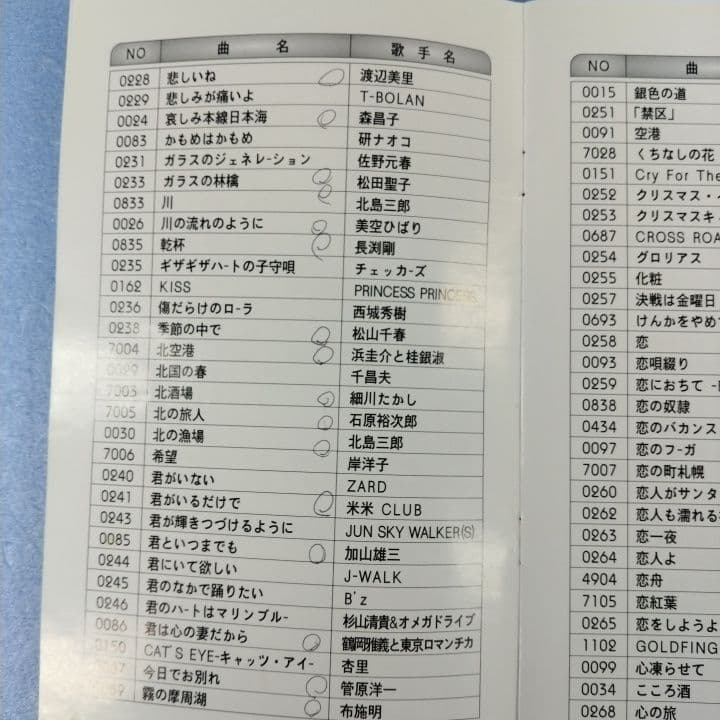 NO 曲名 歌手名
0228 悲しいね 渡辺美里
0229 悲しみが痛いよ T-BOLAN
0024 哀しみ本線日本海 森昌子
0083 かもめはかもめ 研ナオコ
0231 ガラスのジェネレーション 佐野元春
0233 ガラスの林檎 松田聖子
0833 川 北島三郎
0026 川の流れのように 美空ひばり
0835 乾杯 長渕剛
0235 ギザギザハートの子守唄 チェッカーズ
0162 KISS PRINCESS PRINCESS
0236 傷だらけのローラ 西城秀樹
0238 季節の中で 松山千春
7004 北空港 浜圭介と桂銀淑
北国の春 千昌夫
7003 北酒場 細川たかし
7005 北の旅人 石原裕次郎
0030 北の漁場 北島三郎
7006 希望 岸洋子
0240 君がいない ZARD
0241 君がいるだけで 米米 CLUB
0243 君が輝きつづけるように JUN SKY WALKER(S)
0085 君といつまでも 加山雄三
0244 君にいて欲しい J-WALK
0245 君のなかで踊りたい B'z
0246 君のハートはマリンブルー 杉山清貴&オメガドライブ
0086 君は心の妻だから 鶴岡雅義と東京ロマンチカ
0150 CAT'S EYE-キャッツ・アイ- 杏里
今日でお別れ 菅原洋一
霧の摩周湖 布施明
NO 曲
0015 銀色の道
0251 「禁区」
0091 空港
7028 くちなしの花
0151 Cry For The
0252 クリスマス・
0253 クリスマスキ
0687 CROSS ROA
0254 グロリアス
0255 化粧
0257 決戦は金曜日
0693 けんかをやめ
0258 恋
0093 恋唄綴り
0259 恋におちて -
0838 恋の奴隷
0434 恋のバカンス
0097 恋のフーガ
7007 恋の町札幌
0260 恋人がサンタ
0262 恋人も濡れる
0263 恋一夜
0264 恋人よ
4904 恋舟
7105 恋紅葉
0265 恋をしようよ
1102 GOLDFING
0099 心凍らせて
0034 こころ酒
0268 心の旅